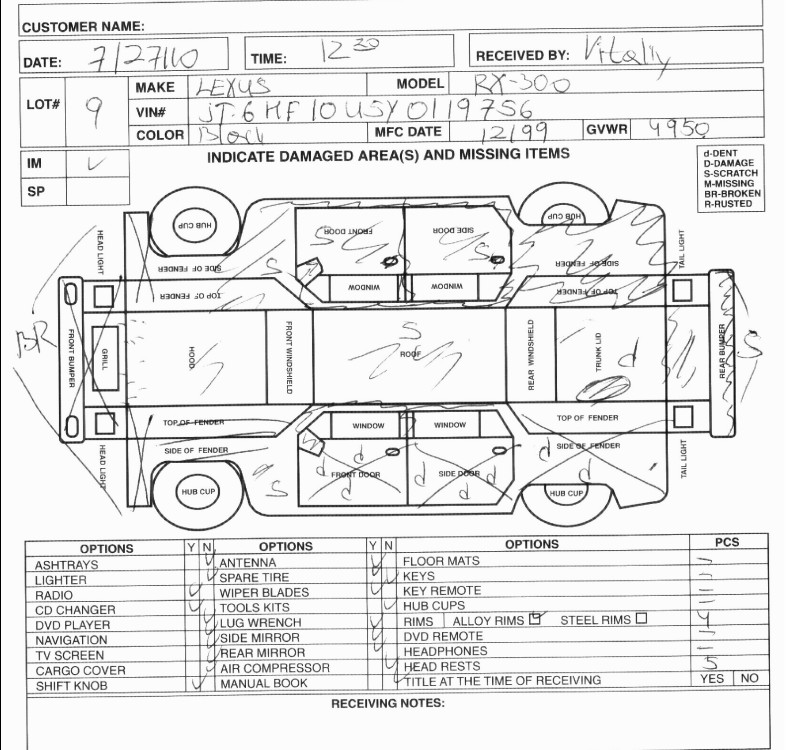 CUSTOMER NAME:
DATE: 7/27/10 TIME: 12 30 RECEIVED BY: Vitaliy
LOT# 9 MAKE LEXUS MODEL RX-300
VIN# JT6HF10U5Y0119756
COLOR Black MFC DATE 12/99 GVWR 4950
IM ✓ INDICATE DAMAGED AREA(S) AND MISSING ITEMS
SP
d-DENT
D-DAMAGE
S-SCRATCH
M-MISSING
BR-BROKEN
R-RUSTED
HUB CUP HUB CUP
HEAD LIGHT SIDE OF FENDER S FRONT DOOR S SIDE DOOR S SIDE OF FENDER TAIL LIGHT
TOP OF FENDER WINDOW WINDOW TOP OF FENDER
BR FRONT BUMPER GRILL HOOD FRONT WINDSHIELD S ROOF REAR WINDSHIELD TRUNK LID d REAR BUMPER S
TOP OF FENDER WINDOW WINDOW TOP OF FENDER
HEAD LIGHT SIDE OF FENDER S d d FRONT DOOR d d SIDE DOOR d d SIDE OF FENDER d TAIL LIGHT
HUB CUP HUB CUP
OPTIONS Y N OPTIONS Y N OPTIONS PCS
ASHTRAYS ANTENNA FLOOR MATS
LIGHTER SPARE TIRE KEYS
RADIO WIPER BLADES KEY REMOTE
CD CHANGER TOOLS KITS HUB CUPS
DVD PLAYER LUG WRENCH RIMS ALLOY RIMS STEEL RIMS 4
NAVIGATION SIDE MIRROR DVD REMOTE
TV SCREEN REAR MIRROR HEADPHONES
CARGO COVER AIR COMPRESSOR HEAD RESTS 5
SHIFT KNOB MANUAL BOOK TITLE AT THE TIME OF RECEIVING YES NO
RECEIVING NOTES: